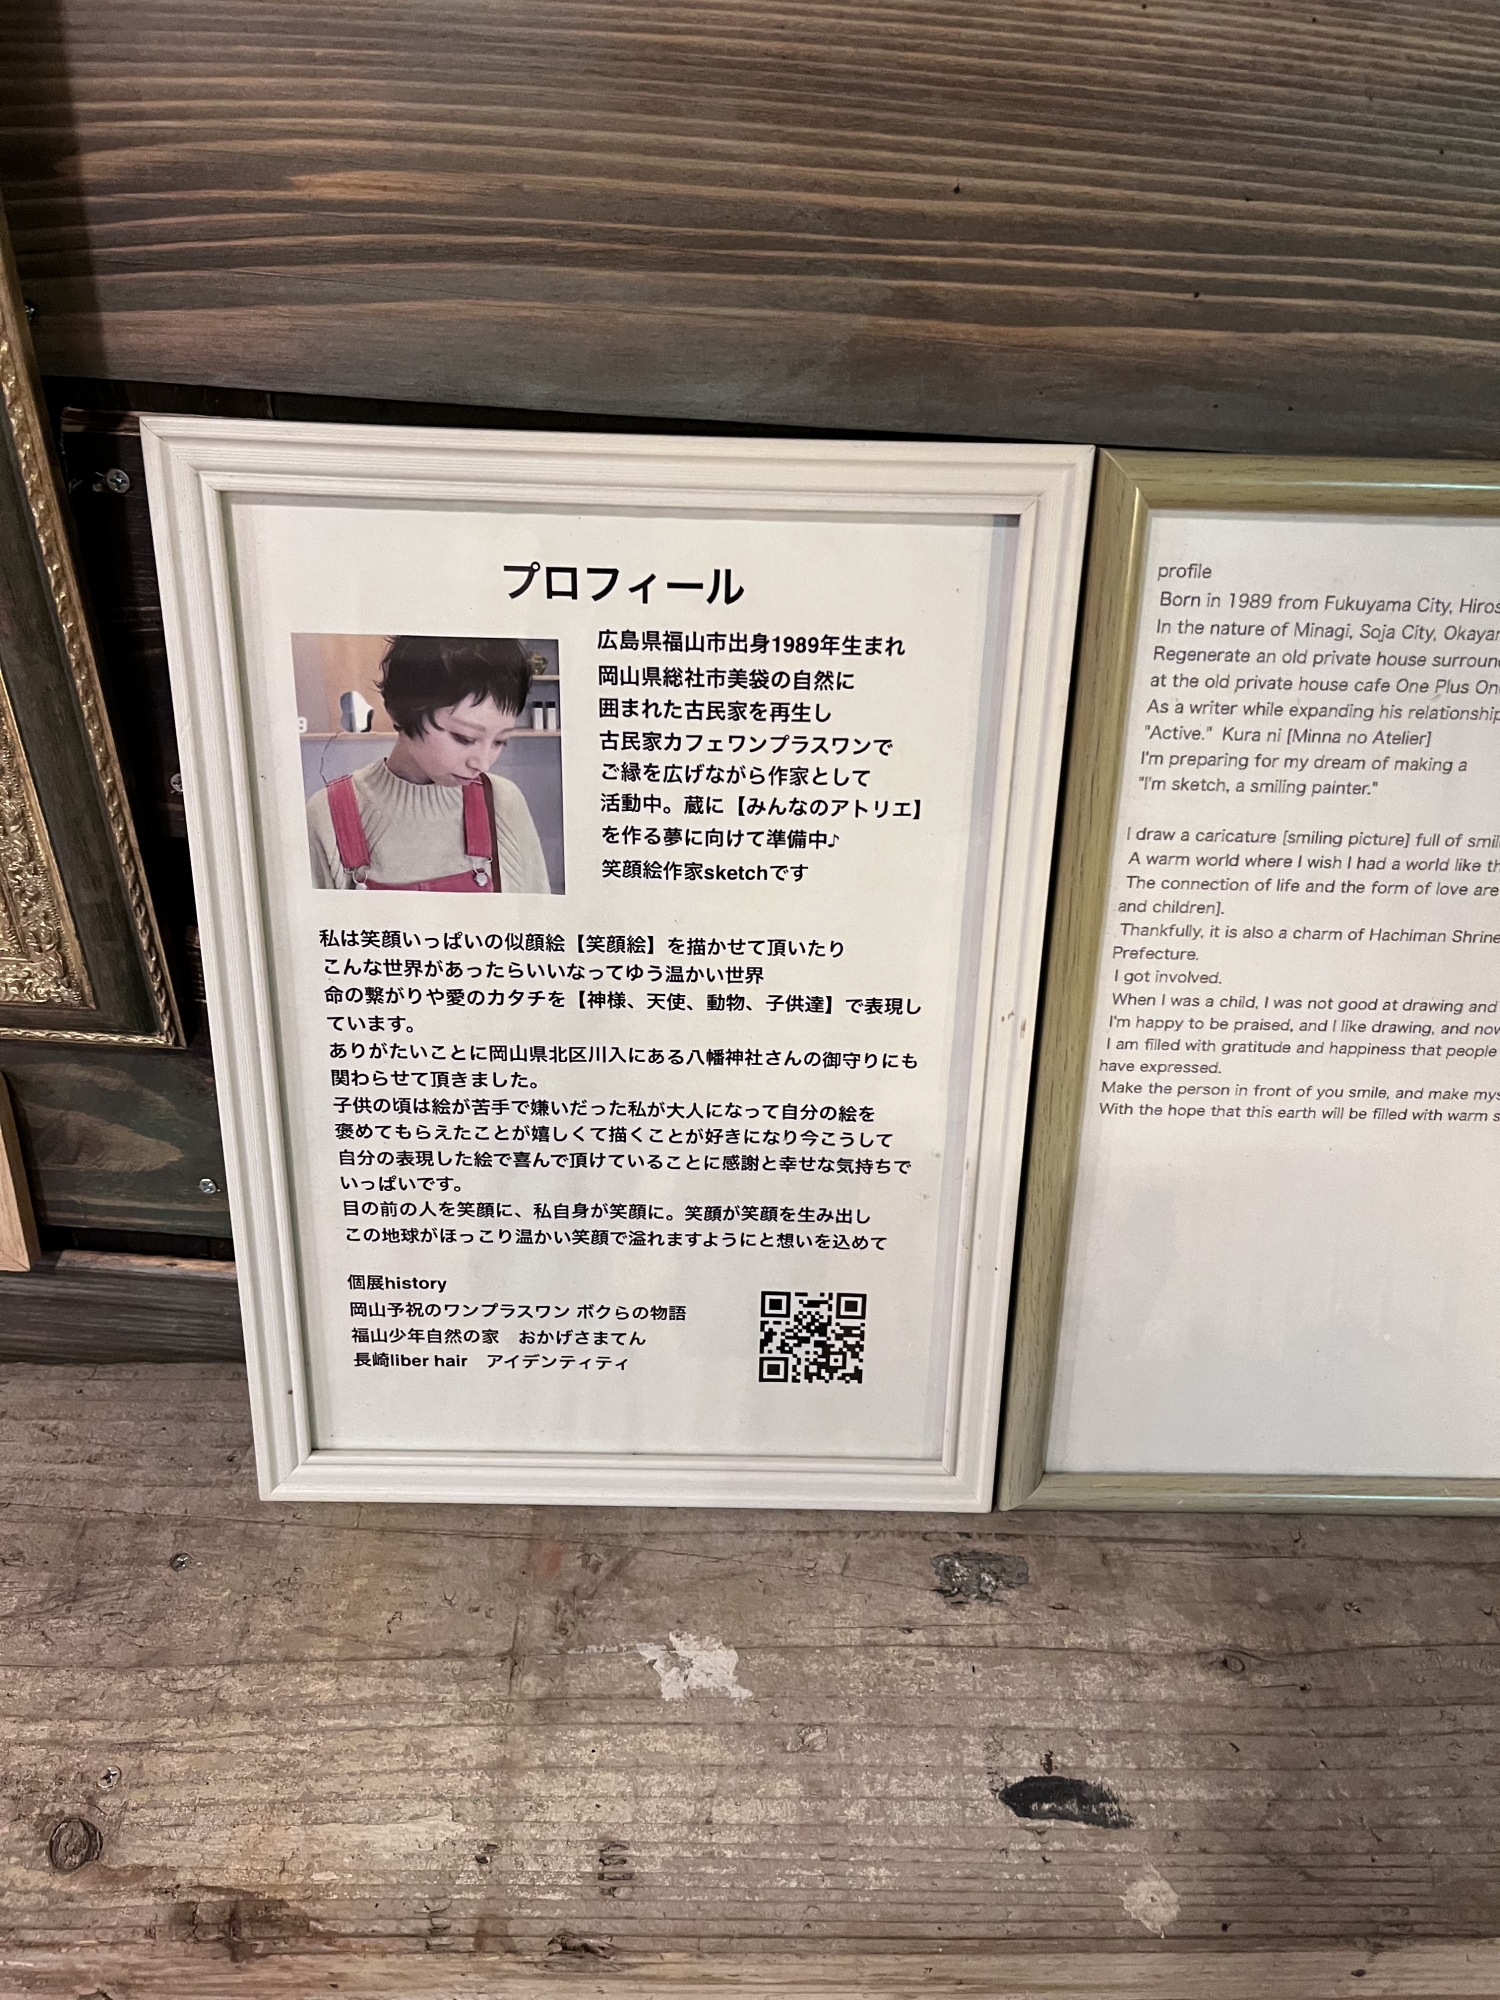 プロフィール
広島県福山市出身1989年生まれ
岡山県総社市美袋の自然に
囲まれた古民家を再生し
古民家カフェワンプラスワンで
ご縁を広げながら作家として
活動中。蔵に【みんなのアトリエ】
を作る夢に向けて準備中♪
笑顔絵作家sketchです
私は笑顔いっぱいの似顔絵【笑顔絵】を描かせて頂いたり
こんな世界があったらいいなってゆう温かい世界
命の繋がりや愛のカタチを【神様、天使、動物、子供達】で表現し
ています。
ありがたいことに岡山県北区川入にある八幡神社さんの御守りにも
関わらせて頂きました。
子供の頃は絵が苦手で嫌いだった私が大人になって自分の絵を
褒めてもらえたことが嬉しくて描くことが好きになり今こうして
自分の表現した絵で喜んで頂けていることに感謝と幸せな気持ちで
いっぱいです。
目の前の人を笑顔に、私自身が笑顔に。笑顔が笑顔を生み出し
この地球がほっこり温かい笑顔で溢れますようにと想いを込めて
個展history
岡山予祝のワンプラスワン ボクらの物語
福山少年自然の家　おかげさまてん
長崎liber hair　アイデンティティ
profile
Born in 1989 from Fukuyama City, Hiros
In the nature of Minagi, Soja City, Okayar
Regenerate an old private house surroun
at the old private house cafe One Plus On
As a writer while expanding his relationship
"Active." Kura ni [Minna no Atelier]
I'm preparing for my dream of making a
"I'm sketch, a smiling painter."
I draw a caricature [smiling picture] full of smil
A warm world where I wish I had a world like th
The connection of life and the form of love are
and children].
Thankfully, it is also a charm of Hachiman Shrine
Prefecture.
I got involved.
When I was a child, I was not good at drawing and
I'm happy to be praised, and I like drawing, and now
I am filled with gratitude and happiness that people
have expressed.
Make the person in front of you smile, and make mys
With the hope that this earth will be filled with warm s